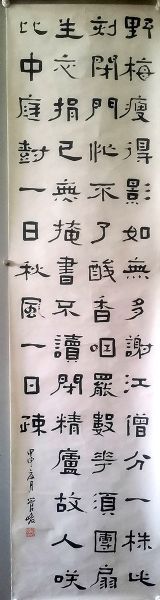 野梅瘦得影如無多謝江僧分一株此
刻閉門忙不了酸香咽罷數華須團扇
生衣捐已無掩書不讀閉精廬故人咲
比中庭樹一日秋風一日疎